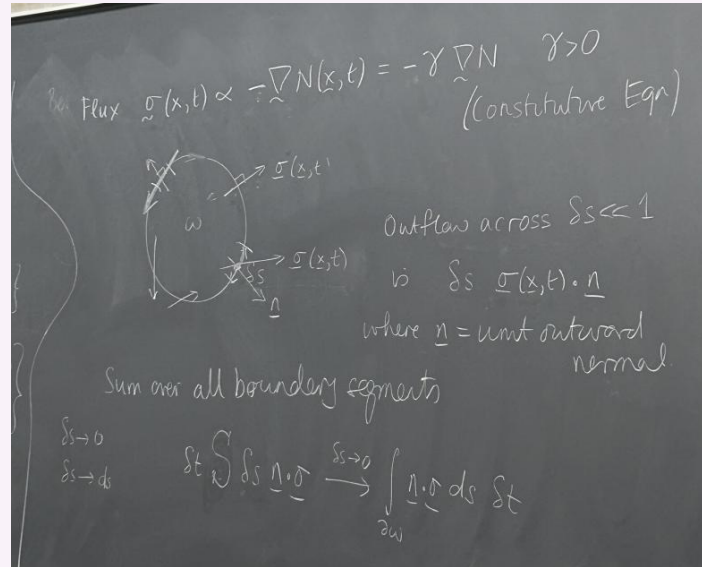 Flux σ(x,t) ∝ -∇N(x,t) = -γ∇N γ>0
(Constitutive Eqn)
σ(x,t)
ω
σ(x,t)
δs
n
Outflow across δs<<1
is δs σ(x,t)·n
where n = unit outward
normal
Sum over all boundary segments
δs→0
δs→ds
δt ∑ δs n·σ →^{δs→0} ∫_{∂ω} n·σ ds δt